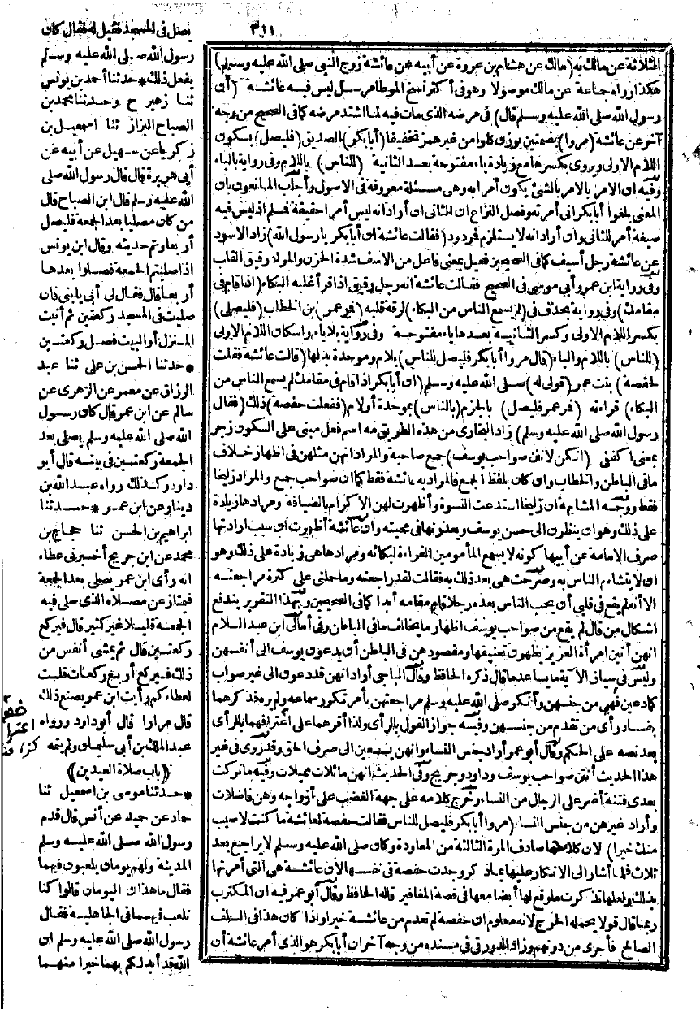 ٣١١
الثلاثة عن مالك به (مالك عن هشام بن عروة عن أبيه عن عائشة زوج النبي صلى الله عليه وسلم)
هكذا رواه جماعة عن مالك موصولا وهو في أكثر نسخ الموطا مرسل ليس فيه عائشة (أن
رسول الله صلى الله عليه وسلم قال) في مرضه الذي مات فيه لما اشتد مرضه كما في الصحيح من وجه
آخر عن عائشة (مروا) بضمتين بوزن كلوا من غير همز تخفيفا (أبا بكر) الصديق (فليصل) بسكون
اللام الاولى ويروى بكسرها مع زيادة ياء مفتوحة بعد الثانية (للناس) باللام وفي رواية بالباء
وفيه ان الامر بالامر بالشئ يكون أمرا به وهي مسئلة معروفة في الاصول وأجاب المانعون بان
المعنى بلغوا أبا بكر اني أمرته وفصل النزاع ان الثاني ان أراد انه ليس أمرا حقيقة فمسلم اذ ليس فيه
صيغة أمر للثاني وان أراد انه لا يستلزم فردود (فقالت عائشة ان أبا بكر يا رسول الله) زاد الاسود
عن عائشة رجل أسيف كما في الصحيحين فعيل بمعنى فاعل من الاسف شدة الحزن والمراد رقيق القلب
وفي رواية ابن عمر وأبي موسى في الصحيح فقالت عائشة انه رجل رقيق اذا قرأ غلبه البكاء (اذا قام في
مقامك) وفي رواية بحذف في (لم يسمع الناس من البكاء) لرقة قلبه (فمر عمر) بن الخطاب (فليصلي)
بكسر اللام الاولى وكسر الثانية بعدها ياء مفتوحة وفي رواية بلا ياء واسكان اللام الاولى
(للناس) باللام والباء (قال مروا أبا بكر فليصل للناس) بلام وموحدة بدلها (قالت عائشة فقلت
لحفصة) بنت عمر (قولي له) صلى الله عليه وسلم (ان أبا بكر اذا قام في مقامك لم يسمع الناس من
البكاء) قراءته (فمر عمر فليصل) بالجزم (بالناس) بموحدة أو لام (ففعلت حفصة) ذلك (فقال
رسول الله صلى الله عليه وسلم) زاد البخاري من هذه الطريق مه اسم فعل مبنى على السكون زجر
بمعنى اكففي (انكن لانتن صواحب يوسف) جمع صاحبة والمراد انهن مثلهن في اظهار خلاف
ما في الباطن والخطاب وان كان بلفظ الجمع فالمراد به عائشة فقط كما ان صواحب جمع والمراد زليخا
فقط ووجه المشابهة ان زليخا استدعت النسوة وأظهرت لهن الاكرام بالضيافة ومرادها زيادة
على ذلك وهو ان ينظرن الى حسن يوسف ويعذرنها في محبته وان عائشة أظهرت ان سبب ارادتها
صرف الامامة عن أبيها كونه لا يسمع المأمومين القراءة لبكائه ومرادها هي زيادة على ذلك وهو
ان لا يتشاءم الناس به وصرحت هي بعد ذلك به فقالت لقد راجعته وما حملني على كثرة مراجعته
الا أنه لم يقع في قلبي أن يحب الناس بعده رجلا قام مقامه أبدا كما في الصحيحين وبهذا التقرير يندفع
اشكال من قال لم يقع من صواحب يوسف اظهار ما يخالف ما في الباطن وفي أمالي ابن عبد السلام
انهن أتين امرأة العزيز يظهرن تعنيفها ومقصودهن في الباطن أن يدعون يوسف الى أنفسهن
وليس في سياق الآية ما يساعد ما قال ذكره الحافظ وقال الباجي أراد انهن قد دعون الى غير صواب
كما دعين فهي من جنسهن وأنكر صلى الله عليه وسلم مراجعتهن بأمر تكرر سماعه ولم يره فذكرهما
بفساد رأى من تقدم من جنسهن وفيه جواز القول بالرأى ولذا أقرهما على اعتراضهما بالرأى
بعد نصه على الحكم وقال أبو عمر أراد جنس النساء وانهن يسعين الى صرف الحق وقد روى في غير
هذا الحديث أنتن صواحب يوسف وداود وجريج وفي الحديث انهن مائلات مميلات وفيه ما تركت
بعدي فتنة أضر على الرجال من النساء وخرج كلامه على جهة الغضب على أزواجه وهن فاضلات
وأراد غيرهن من جنس النساء (مروا أبا بكر فليصل للناس فقالت حفصة لعائشة ما كنت لاصيب
منك خيرا) لان كلامها صادف المرة الثالثة من المعاودة وكان صلى الله عليه وسلم لا يراجع بعد
ثلاث فلما أشار الى الانكار عليها بما ذكر وجدت حفصة في نفسها لان عائشة هي التي أمرتها
بذلك ولعلها تذكرت ما وقع لها أيضا معها في قصة المغافير قاله الحافظ وقال أبو عمر فيه ان المكترب
ربما قال قولا يحمله الحرج لانه معلوم ان حفصة لم تعدم من عائشة خيرا واذا كان هذا في السلف
الصالح فأحرى من دونهم وزاد الدورقي في مسنده من وجه آخر ان أبا بكر هو الذي أمر عائشة أن
يصل في المسجد فقيل له فقال كان
رسول الله صلى الله عليه وسلم
يفعل ذلك * حدثنا أحمد بن يونس
ثنا زهير ح وحدثنا محمد بن
الصباح البزاز ثنا اسمعيل بن
زكريا عن سهيل عن أبيه عن
أبي هريرة قال قال رسول الله صلى
الله عليه وسلم قال ابن الصباح قال
من كان مصليا بعد الجمعة فليصل
أربعا وتم حديثه وقال ابن يونس
اذا صليتم الجمعة فصلوا بعدها
أربعا قال فقال لي أبي يا بني فان
صليت في المسجد ركعتين ثم أتيت
المنزل أو البيت فصل ركعتين
* حدثنا الحسن بن علي ثنا عبد
الرزاق عن معمر عن الزهري عن
سالم عن ابن عمر قال كان رسول
الله صلى الله عليه وسلم يصلي بعد
الجمعة ركعتين في بيته قال أبو
داود وكذلك رواه عبد الله بن
دينار عن ابن عمر * حدثنا
ابراهيم بن الحسن ثنا حجاج بن
محمد عن ابن جريج أخبرني عطاء
انه رأى ابن عمر يصلي بعد الجمعة
فينماز عن مصلاه الذي صلى فيه
الجمعة قليلا غير كثير قال فيركع
ركعتين قال ثم يمشي أنفس من
ذلك فيركع أربع ركعات قلت
لعطاء كم رأيت ابن عمر يصنع ذلك
قال مرارا قال أبو داود ورواه
عبد الملك بن أبي سليمان ولم يتمه
(باب صلاة العيدين)
* حدثنا موسى بن اسمعيل ثنا
حماد عن حميد عن أنس قال قدم
رسول الله صلى الله عليه وسلم
المدينة ولهم يومان يلعبون فيهما
فقال ما هذان اليومان قالوا كنا
نلعب فيهما في الجاهلية فقال
رسول الله صلى الله عليه وسلم ان
الله قد أبدلكم بهما خيرا منهما